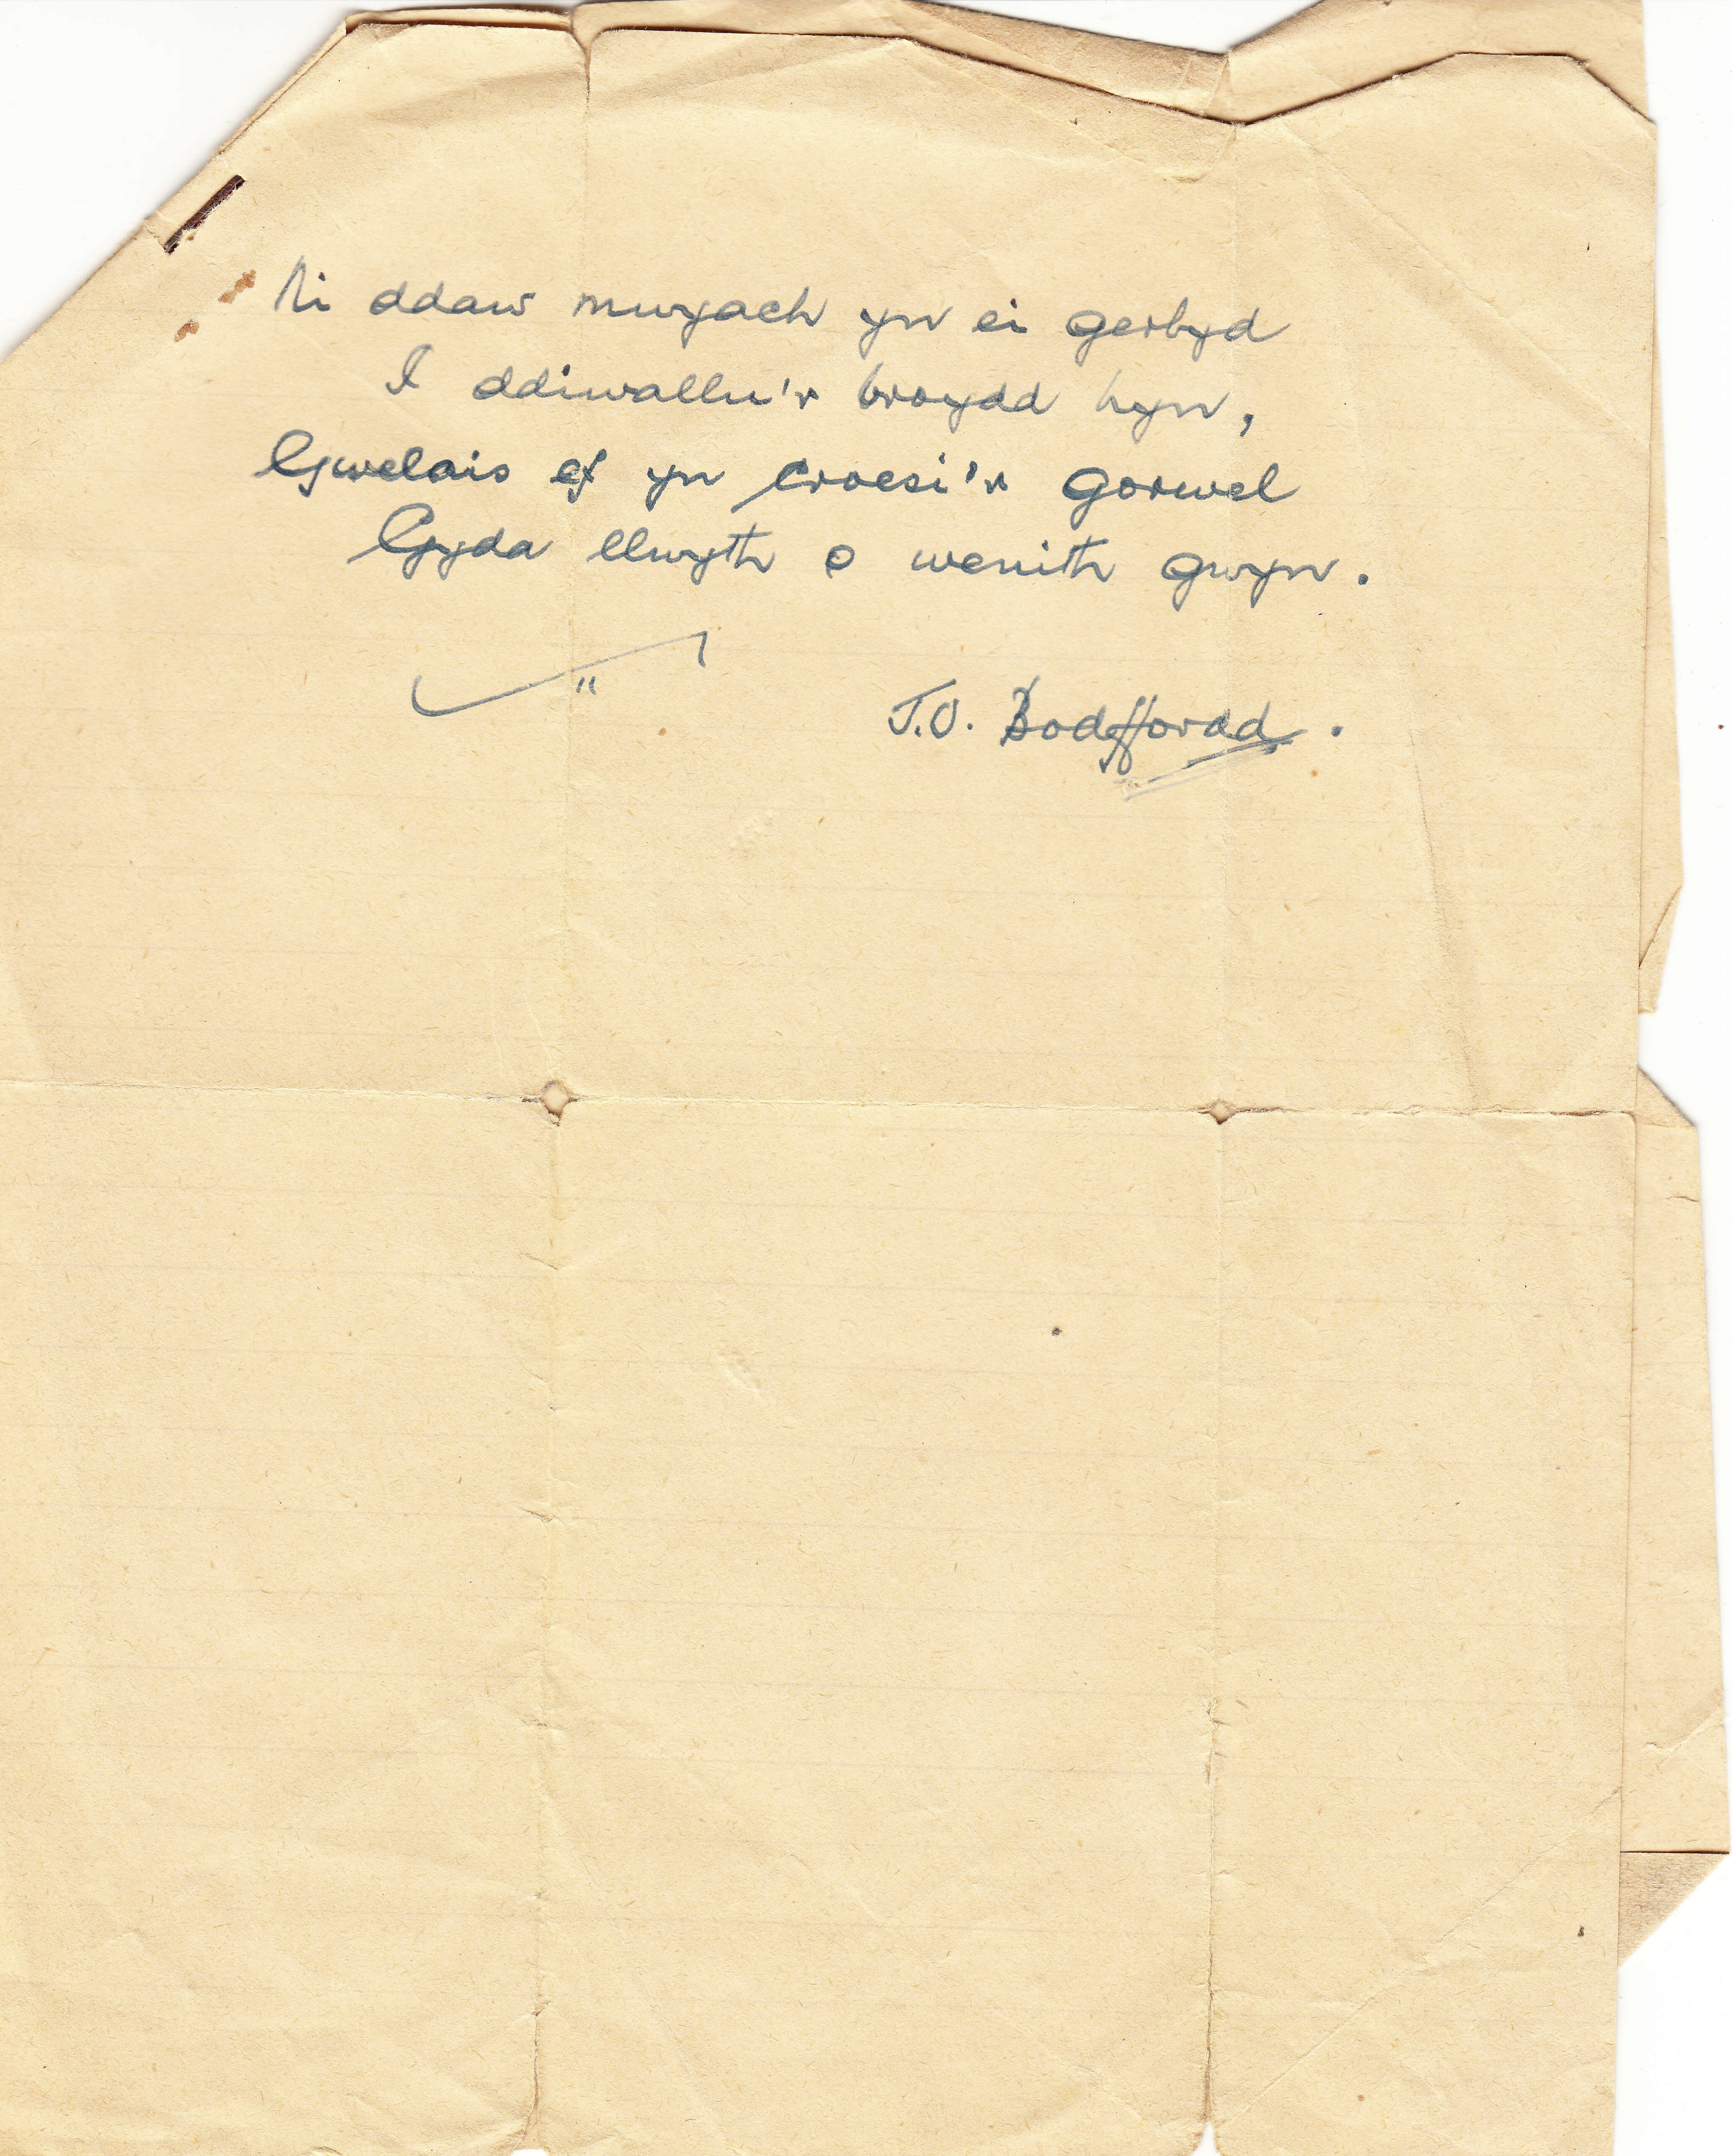 Ni ddaw mwyach yn ei gerbyd
I ddiwallu'r broydd hyn,
Gwelais ef yn croesi'r gorwel
Gyda llwyth o wenith gwyn.
"
J.O. Bodffordd.